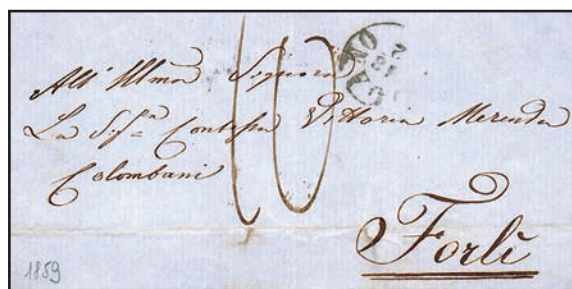 All' Illma Signora
La Sigra Contessa Vittoria Merenda
Colombani
10
Forlì
1859